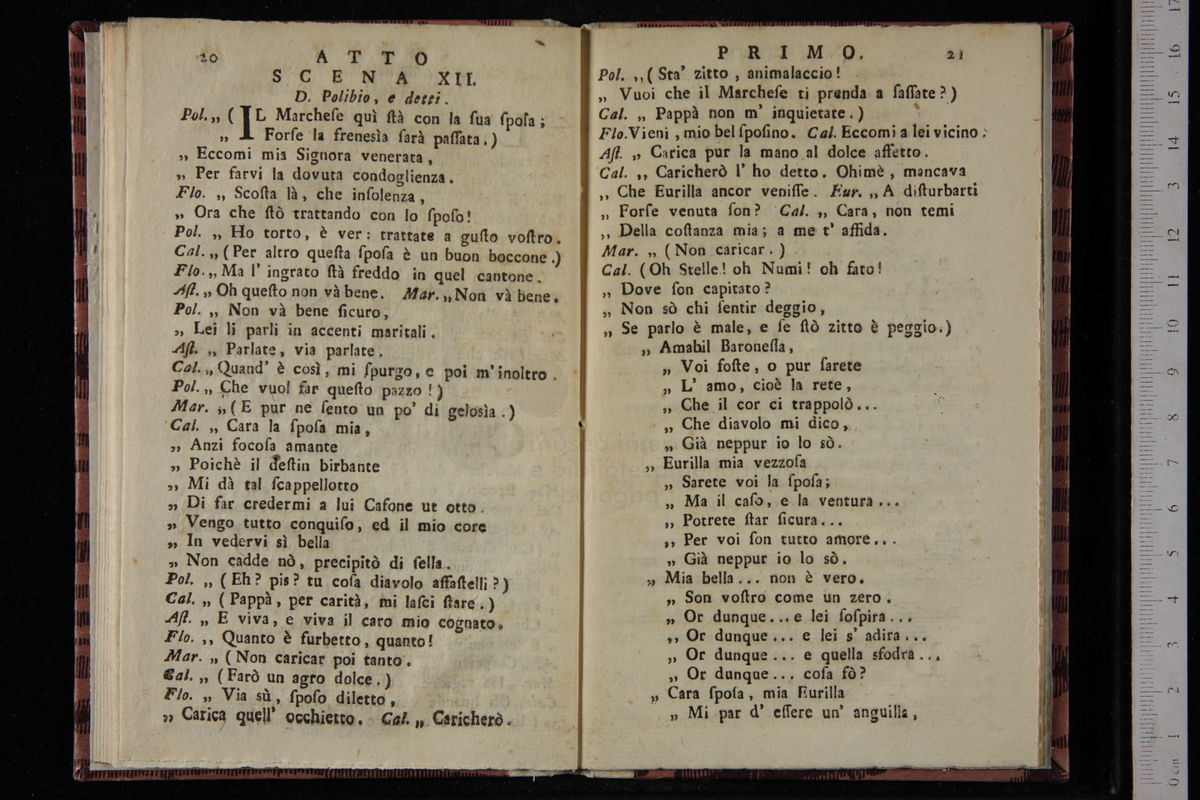 20 ATTO
SCENA XII.
D. Polibio, e detti.
Pol. „ ( IL Marcheſe quì ſtà con la ſua ſpoſa;
„ Forſe la freneſia ſarà paſſata.)
„ Eccomi mia Signora venerata,
„ Per farvi la dovuta condoglienza.
Flo. „ Scoſta là, che inſolenza,
„ Ora che ſtò trattando con lo ſpoſo!
Pol. „ Ho torto, è ver: trattate a guſto voſtro.
Cal. „ (Per altro queſta ſpoſa è un buon boccone.)
Flo. „ Ma l' ingrato ſtà freddo in quel cantone.
Aſt. „ Oh queſto non và bene. Mar. „ Non và bene.
Pol. „ Non và bene ſicuro,
„ Lei li parli in accenti maritali.
Aſt. „ Parlate, via parlate.
Cal. „ Quand' è così, mi ſpurgo, e poi m' inoltro.
Pol. „ Che vuol far queſto pazzo!)
Mar. „ (E pur ne ſento un po' di gelosìa.)
Cal. „ Cara la ſpoſa mia,
„ Anzi focoſa amante
„ Poichè il deſtin birbante
„ Mi dà tal ſcappellotto
„ Di far credermi a lui Cafone ut otto.
„ Vengo tutto conquiſo, ed il mio core
„ In vedervi sì bella
„ Non cadde nò, precipitò di ſella.
Pol. „ (Eh? pis? tu coſa diavolo affaſtelli?)
Cal. „ (Pappà, per carità, mi laſci ſtare.)
Aſt. „ E viva, e viva il caro mio cognato.
Flo. ,, Quanto è furbetto, quanto!
Mar. „ (Non caricar poi tanto.
Cal. „ (Farò un agro dolce.)
Flo. „ Via sù, ſpoſo diletto,
„ Carica quell' occhietto. Cal. „ Caricherò.
PRIMO. 21
Pol. ,, (Sta' zitto, animalaccio!
„ Vuoi che il Marcheſe ti prenda a ſaſſate?)
Cal. „ Pappà non m' inquietate.)
Flo. Vieni, mio bel ſpoſino. Cal. Eccomi a lei vicino.
Aſt. „ Carica pur la mano al dolce affetto.
Cal. ,, Caricherò l' ho detto. Ohimè, mancava
,, Che Eurilla ancor veniſſe. Eur. „ A diſturbarti
„ Forſe venuta ſon? Cal. „ Cara, non temi
,, Della coſtanza mia; a me t' affida.
Mar. „ (Non caricar.)
Cal. (Oh Stelle! oh Numi! oh fato!
„ Dove ſon capitato?
„ Non sò chi ſentir deggio,
„ Se parlo è male, e ſe ſtò zitto è peggio.)
„ Amabil Baroneſſa,
„ Voi foſte, o pur ſarete
„ L' amo, cioè la rete,
„ Che il cor ci trappolò...
„ Che diavolo mi dico,
„ Già neppur io lo sò.
„ Eurilla mia vezzoſa
„ Sarete voi la ſpoſa;
„ Ma il caſo, e la ventura...
„ Potrete ſtar ſicura...
,, Per voi ſon tutto amore...
„ Già neppur io lo sò.
„ Mia bella... non è vero.
„ Son voſtro come un zero.
„ Or dunque... e lei ſoſpira...
,, Or dunque... e lei s' adira...
„ Or dunque... e quella sfodra...
„ Or dunque... coſa fò?
„ Cara ſpoſa, mia Eurilla
„ Mi par d' eſſere un' anguilla,